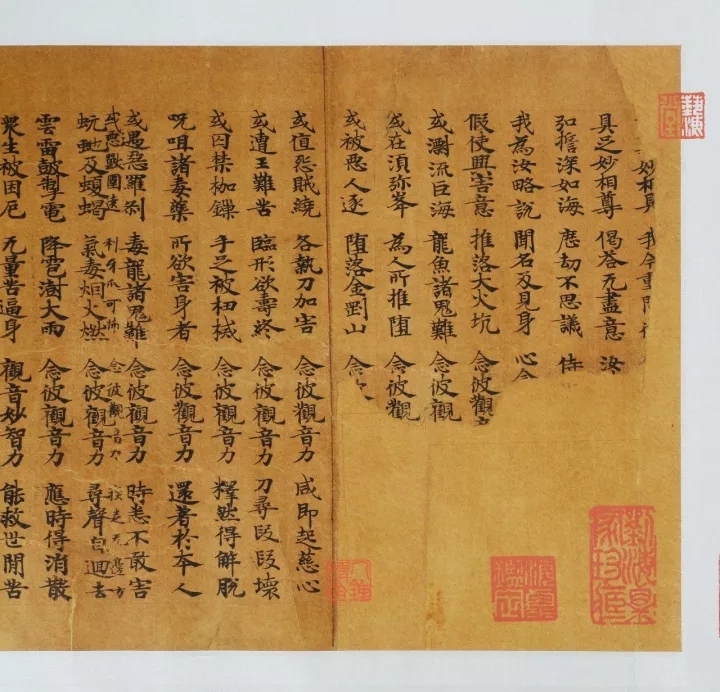 妙相具 我今重問
具足妙相尊 偈荅无盡意 汝
弘誓深如海 歷劫不思議 侍
我為汝略說 聞名及見身 心念
假使興害意 推落大火坑 念彼觀
或漂流巨海 龍魚諸鬼難 念彼觀
或在須弥峯 為人所推墮 念彼觀
或被惡人逐 墮落金剛山 念彼
或值怨賊繞 各執刀加害 念彼觀音力 咸即起慈心
或遭王難苦 臨形欲壽終 念彼觀音力 刀尋段段壞
或囚禁枷鏁 手足被杻械 念彼觀音力 釋然得解脫
呪咀諸毒藥 所欲害身者 念彼觀音力 還著於本人
或遇惡羅刹 毒龍諸鬼難 念彼觀音力 時悉不敢害
或惡獸圍遶 利牙爪可怖 念彼觀音力 疾走无邊方
蚖虵及蝮蝎 氣毒烟火燃 念彼觀音力 尋聲自迴去
雲雷皷掣電 降雹澍大雨 念彼觀音力 應時得消散
衆生被困厄 无量苦逼身 觀音妙智力 能救世間苦